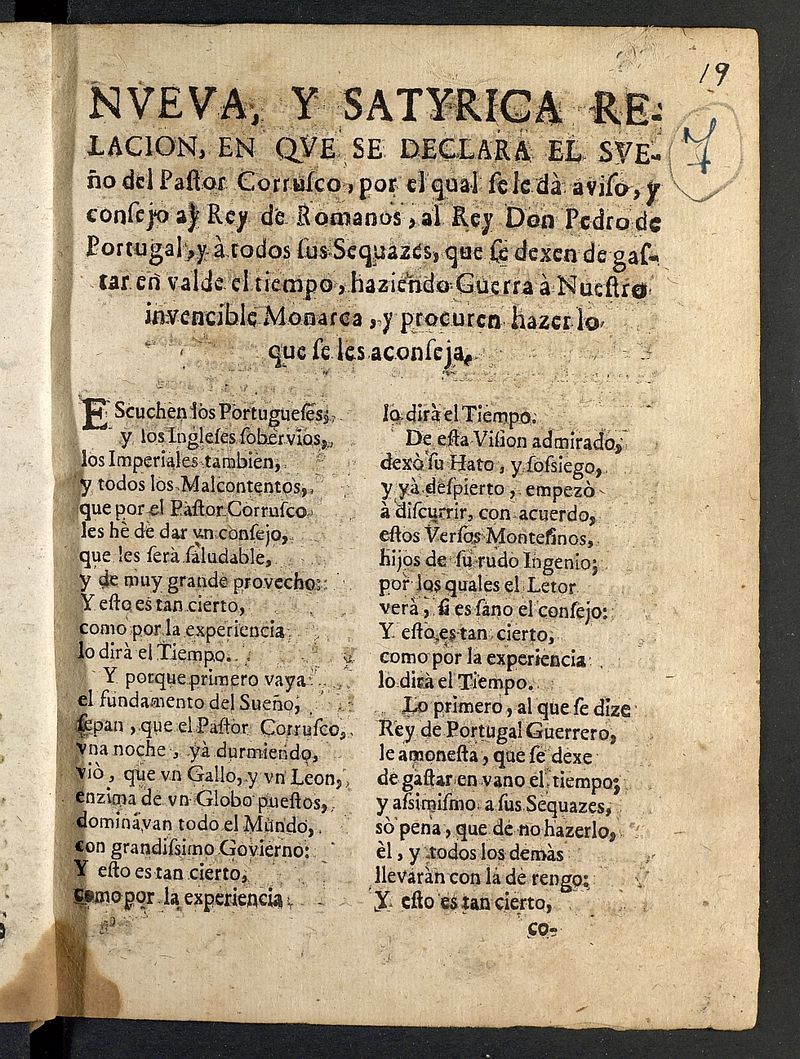 19
7
NVEVA, Y SATYRICA RE-
LACION, EN QVE SE DECLARA EL SVE-
ño del Paſtor Corruſco, por el qual ſe le dà aviſo, y
conſejo al Rey de Romanos, al Rey Don Pedro de
Portugal, y à todos ſus Sequazes, que ſe dexen de gaſ-
tar en valde el tiempo, haziendo Guerra à Nueſtro
invencible Monarca, y procuren hazer lo
que ſe les aconſeja.
EScuchen los Portugueſes,
y los Ingleſes ſobervios,
los Imperiales tambien,
y todos los Malcontentos,
que por el Paſtor Corruſco
les hè de dar vn conſejo,
que les ſerà ſaludable,
y de muy grande provecho:
Y eſto es tan cierto,
como por la experiencia
lo dirà el Tiempo.
Y porque primero vaya
el fundamento del Sueño,
ſepan, que el Paſtor Corruſco,
vna noche, yà durmiendo,
viò, que vn Gallo, y vn Leon,
enzima de vn Globo pueſtos,
dominavan todo el Mundo,
con grandiſsimo Govierno:
Y eſto es tan cierto,
como por la experiencia
lo dirà el Tiempo.
De eſta Viſion admirado,
dexò ſu Hato, y ſoſsiego,
y yà deſpierto, empezò
à diſcurrir, con acuerdo,
eſtos Verſos Monteſinos,
hijos de ſu rudo Ingenio;
por los quales el Letor
verà, ſi es ſano el conſejo:
Y eſto es tan cierto,
como por la experiencia
lo dirà el Tiempo.
Lo primero, al que ſe dize
Rey de Portugal Guerrero,
le amoneſta, que ſe dexe
de gaſtar en vano el tiempo;
y aſsimiſmo a ſus Sequazes,
sò pena, que de no hazerlo,
èl, y todos los demàs
llevaràn con la de rengo:
Y eſto es tan cierto,
co-